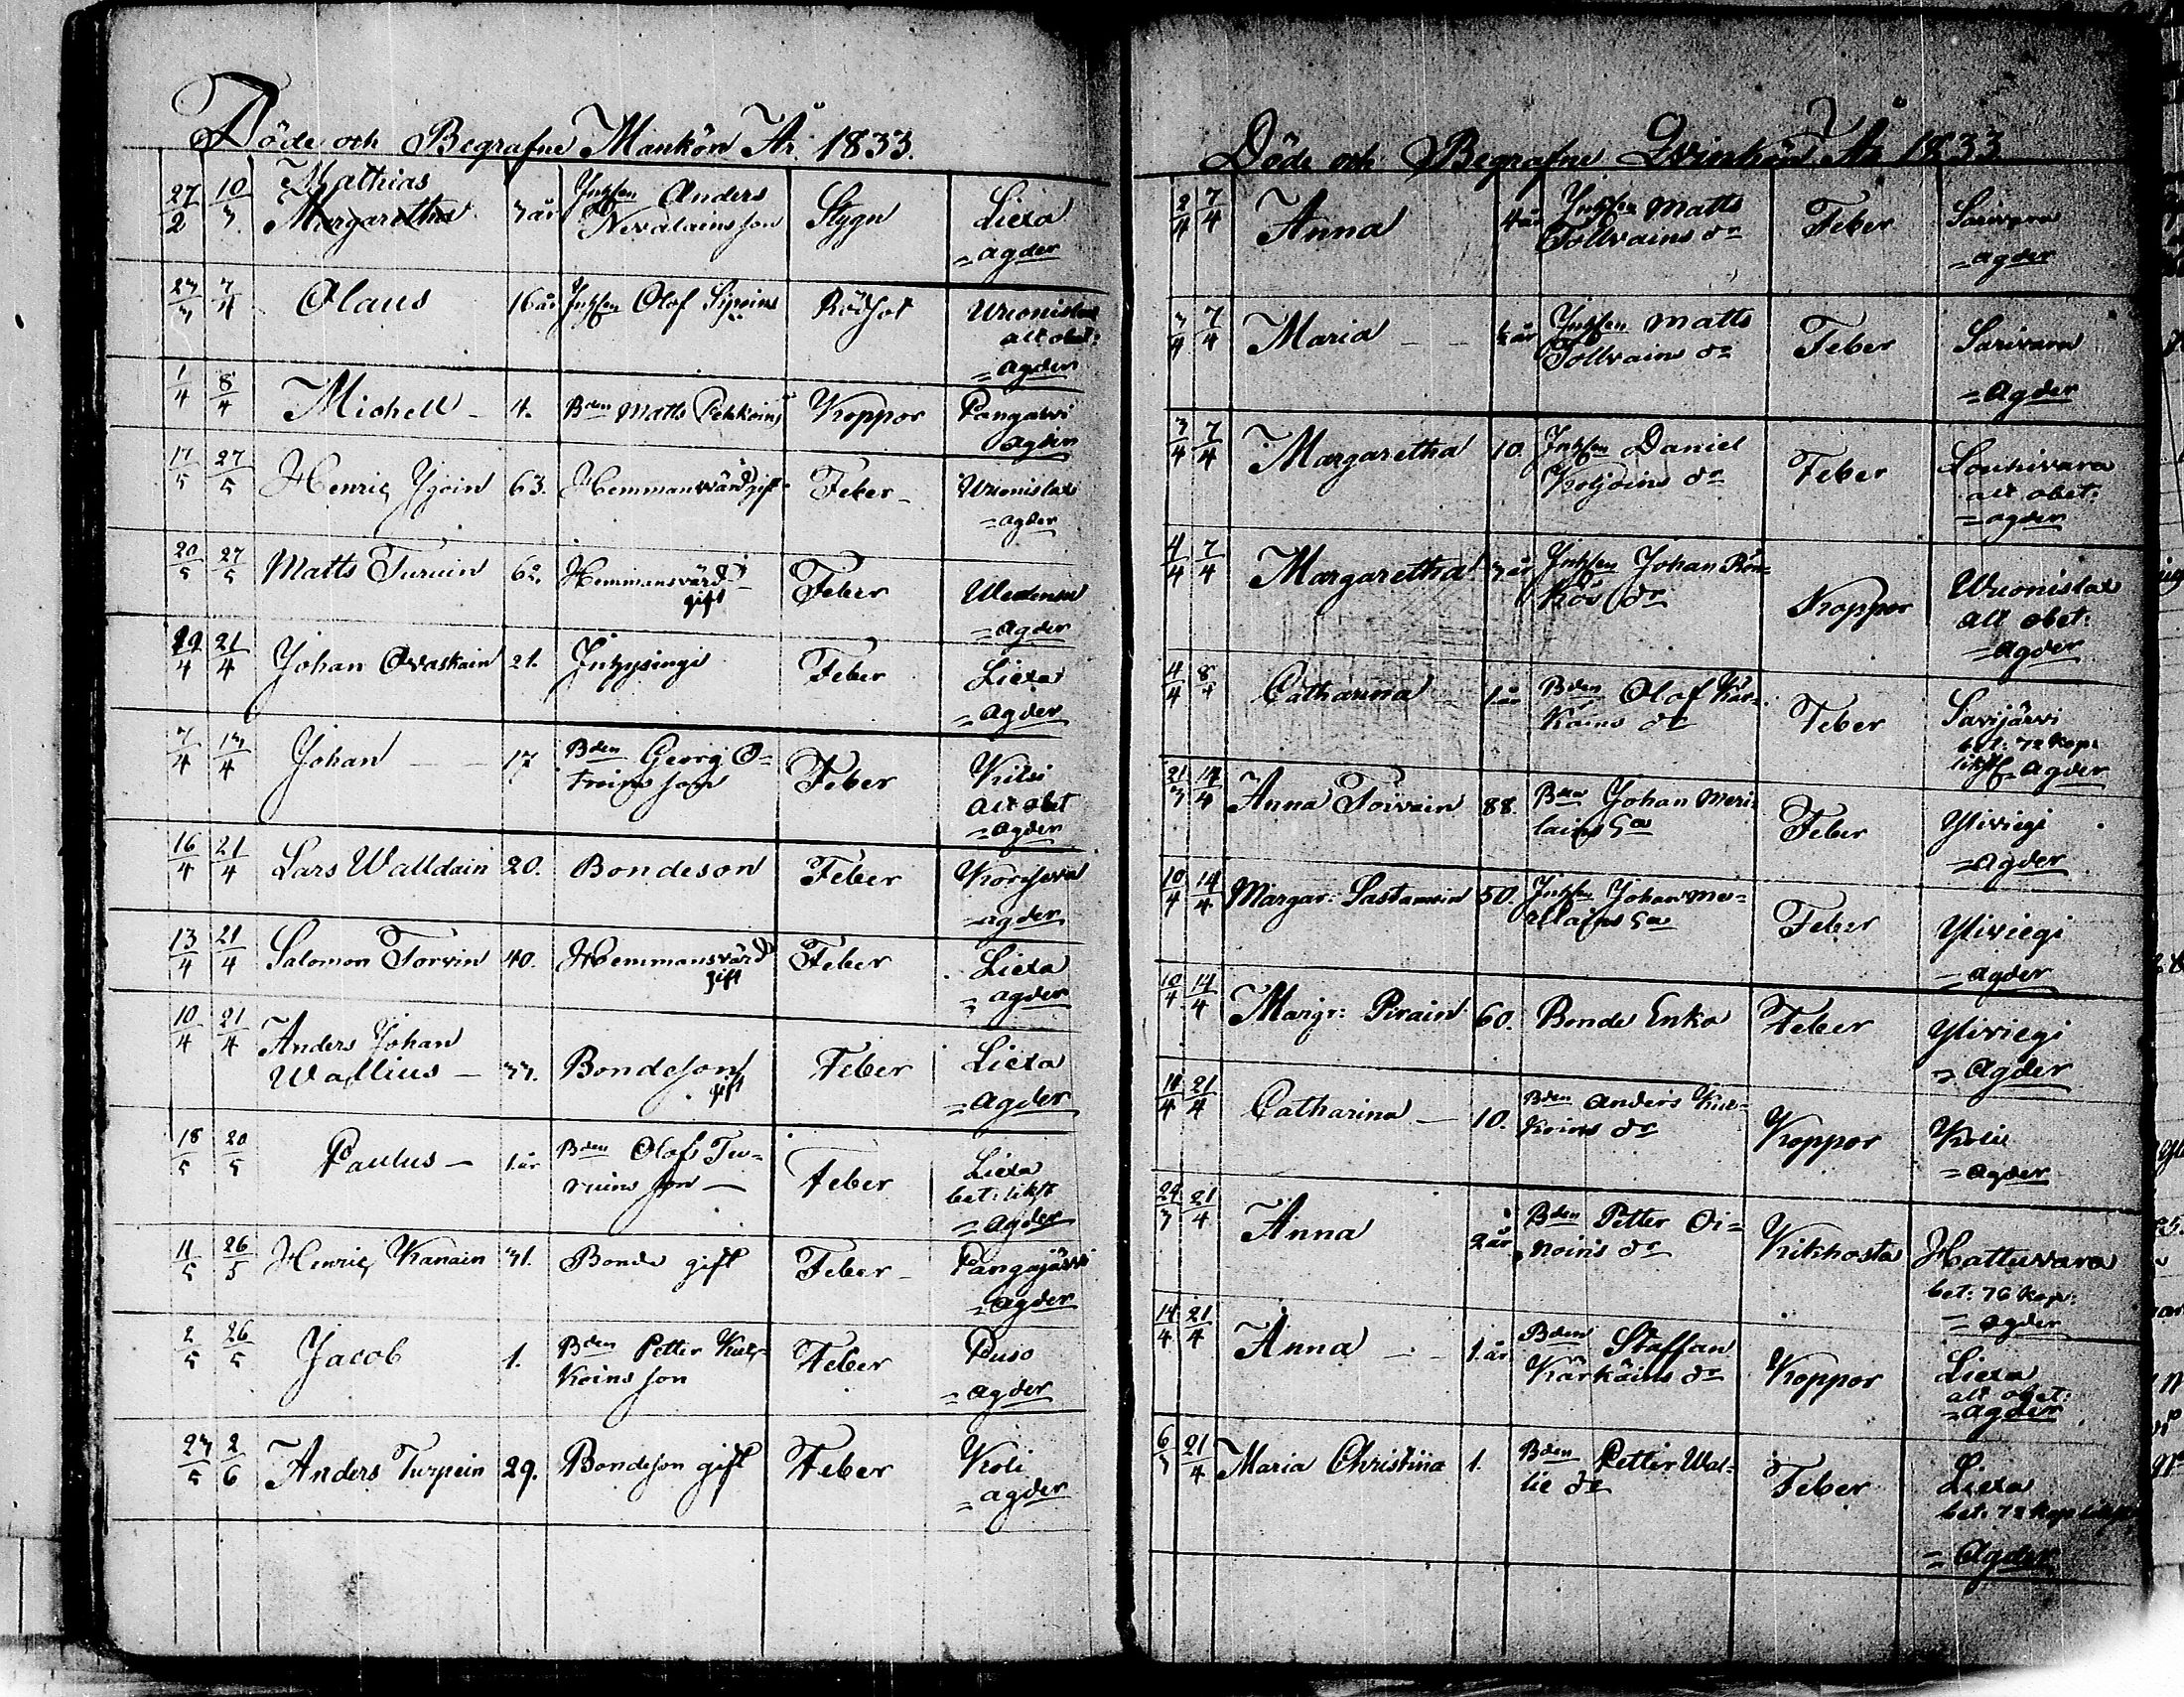 Döde och Begrafne Mankön År 1833.
27/2 10/3 Mathias
Margaretha 3 år Inhsen Anders
Nevalains son Stygn Liexa
= agder
23/3 7/4 Olaus 16 år Inhsen Olof Sipoins Rödsot Wuonislax
alt obet:
= agder
1/4 8/4 Michell 4. Bden Matts Pekkoins Koppor Pangaxvi
agder
17/5 27/5 Henric Ygoin 63. Hemmanswärd gift Feber Wuonislax
= agder
20/5 27/5 Matts Turuin 62. Hemmansvärd
gift Feber
= agder
19/4 21/4 Johan Ovaskain 21. Inhysingi Feber Liexa
= agder
7/4 13/4 Johan 17 Bden Georg O=
troins son Feber Kilsi
alt obet
= agder
16/4 21/4 Lars Walldain 20. Bondeson Feber
agder
13/4 21/4 Salomon Torvin 40. Hemmansvärd
gift Feber Liexa
= agder
10/4 21/4 Anders Johan
Wallius 33. Bondeson
gift Feber Liexa
= agder
18/5 20/5 Paulus 1 år Bden Olof Tu=
ruins son Feber Liexa
bet: likst
= agder
11/5 26/5 Henric Kanain 31. Bonde gift Feber Pangajärvi
= agder
2/5 26/5 Jacob 1. Bden Petter Kuk=
koins son Feber Puso
= agder
23/5 2/6 Anders Turpein 29. Bondeson gift Feber Koli
= agder
Döde och Begrafne Qvinkön År 1833
2/4 7/4 Anna 4 år Inhsen Matts
Tollvains dr Feber Sarivara
= agder
3/4 7/4 Maria ½ år Inhsen Matts
Tollvains dr Feber Sarivara
= agder
3/4 7/4 Margaretha 10. Inhsen Daniel
Koljoins dr Feber Louhivara
alt obet:
= agder
4/4 7/4 Margaretha 3 år Inhsen Johan Rön=
kös dr Koppor Wuonislax
alt obet:
= agder
4/4 8/4 Catharina 1 år Bden Olof Kär=
käins dr Feber Savijärvi
bet: 72 kop:
agder
21/3 14/4 Anna Toivain 88. Bden Johan Meri=
lains Feber Yliviegi
= agder
10/4 14/4 Margar: Sastamoin 50. Inhsen Johan Me=
rilains Feber Yliviegi
= agder
10/4 14/4 Margr: Pirain 60. Bonde Enka Feber Yliviegi
= agder
14/4 21/4 Catharina 10. Bden Anders Kuk=
koins dr Koppor Kolii
= agder
24/3 21/4 Anna 2 år Bden Petter Oi=
noins dr Kikhosta Hattuvara
bet: 76 kop:
= agder
14/4 21/4 Anna 1 år Bden Staffan
Kärkäins dr Koppor Liexa
alt obet:
= agder
6/3 21/4 Maria Christina 1. Bden Petter Wal=
lie dr Feber Liexa
bet: 72 kop
= agder